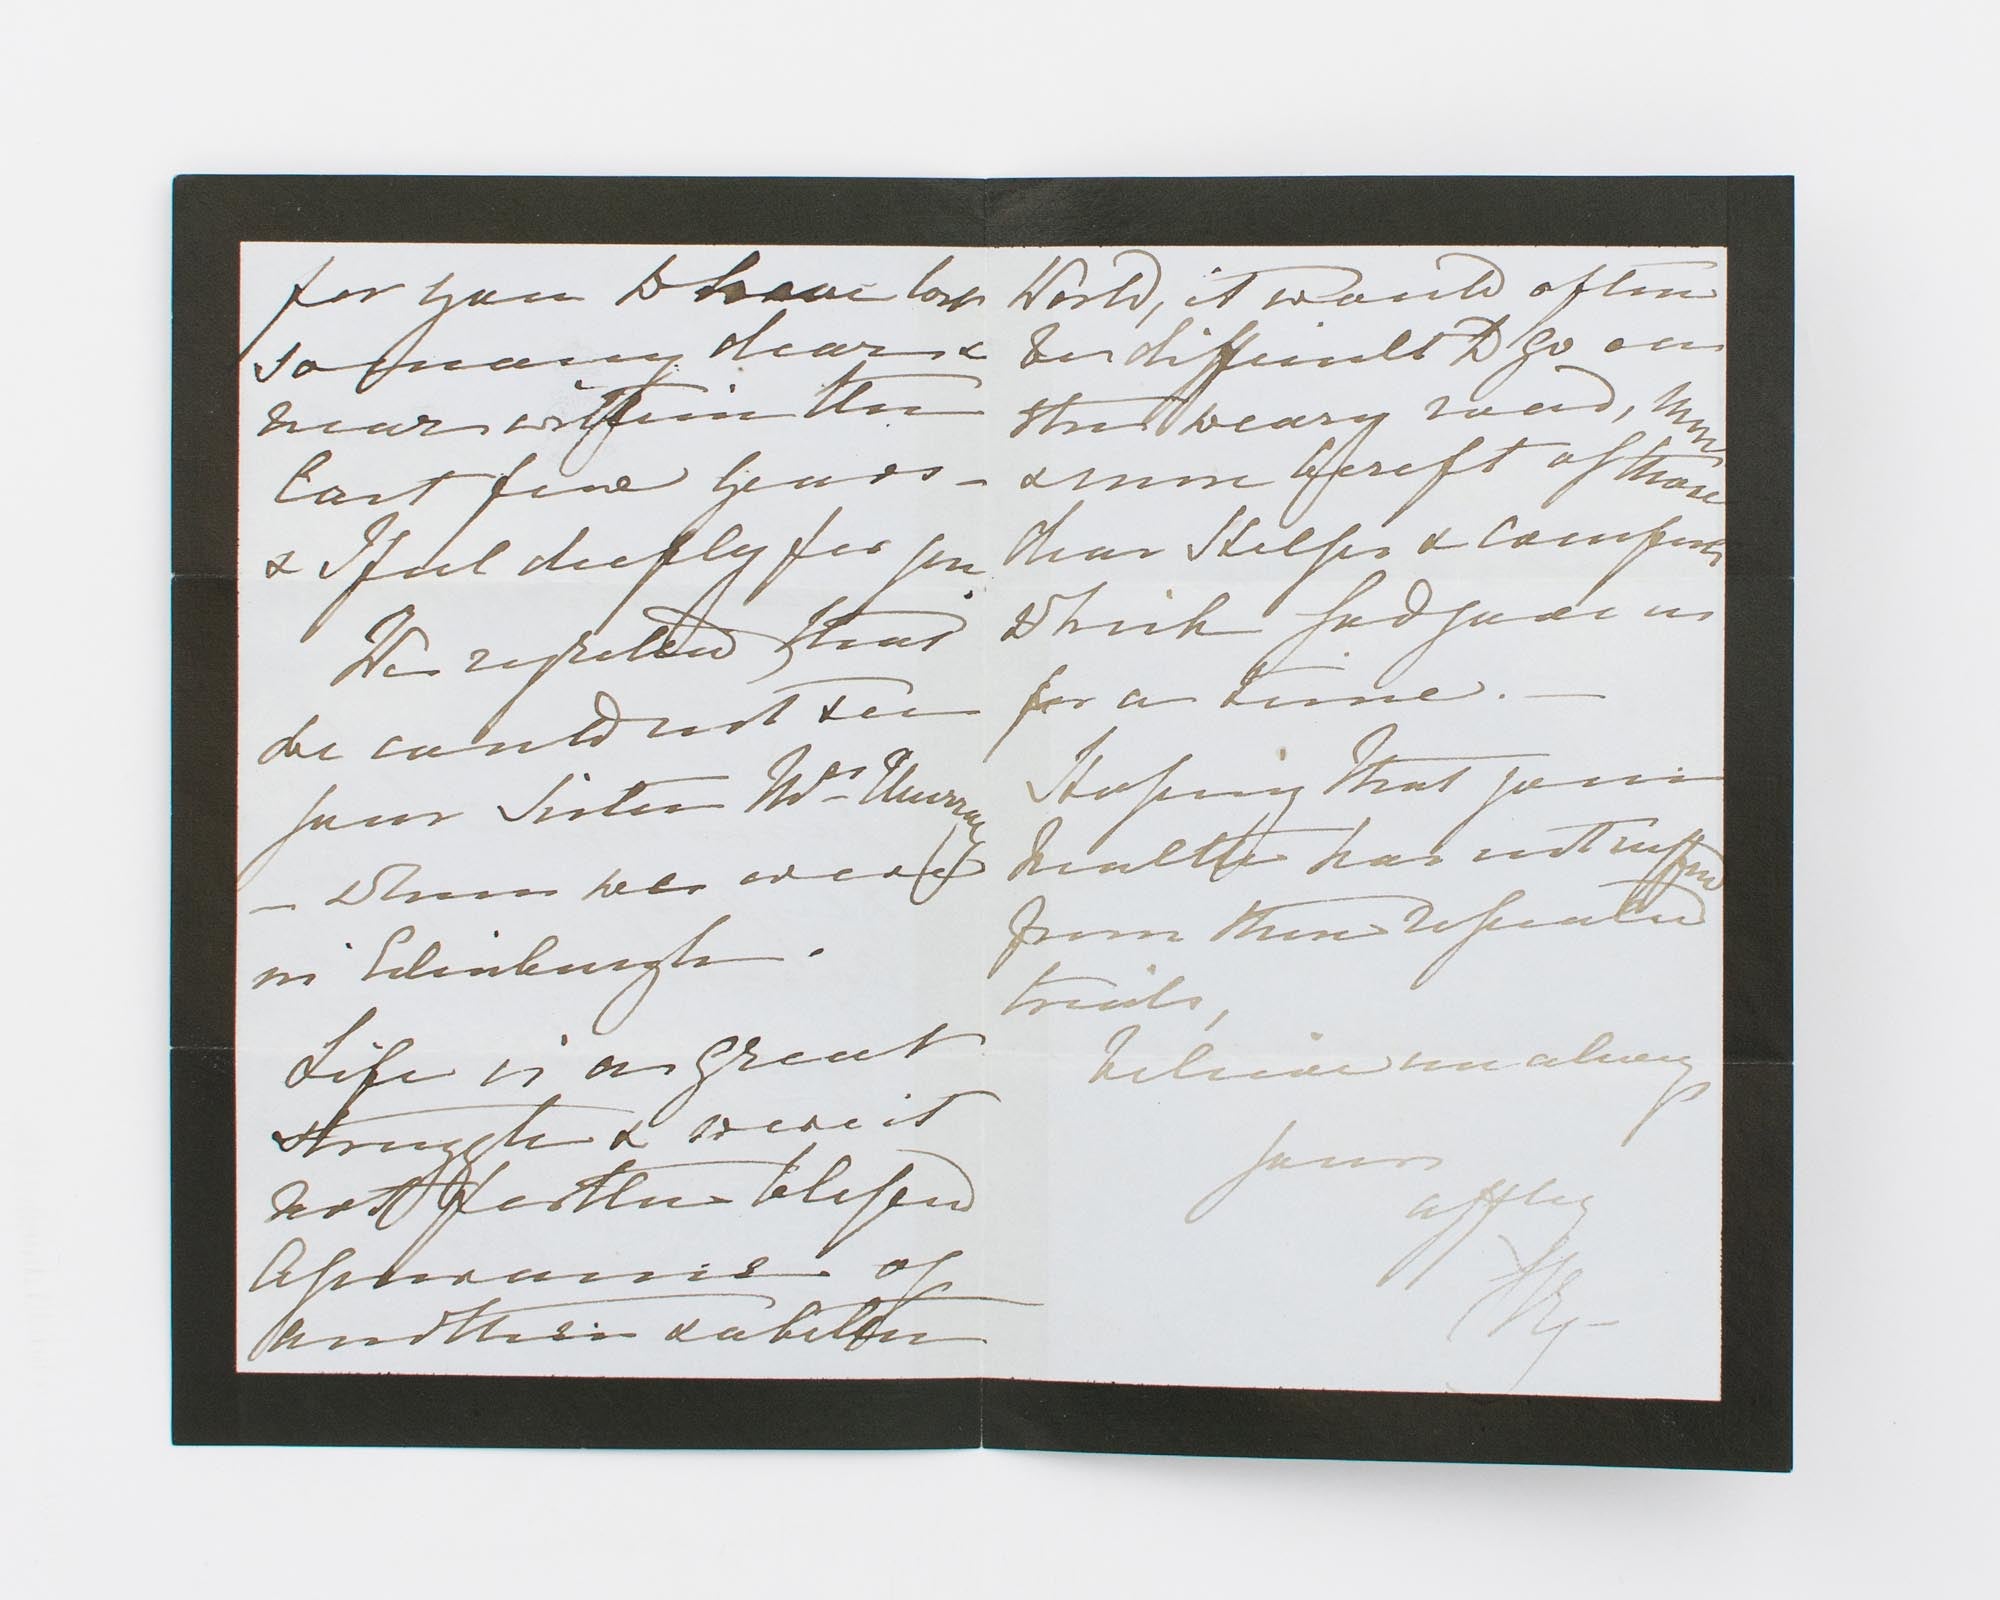 for you to have lost
so many dear &
near within the
last few years –
& I feel deeply for you.
We regretted that
we could not see
your Sister Mrs Murray
– when we were
in Edinburgh.
Life is a great
struggle & were it
not for the blessed
assurance of
another & a better
World, it would often
be difficult to go on
the weary road, more
& more bereft of those
dear Helps & comforts
which God gave us
for a time. –
Hoping that your
health has not suffered
from these repeated
trials,
believe me always
yours
affly
VRI –